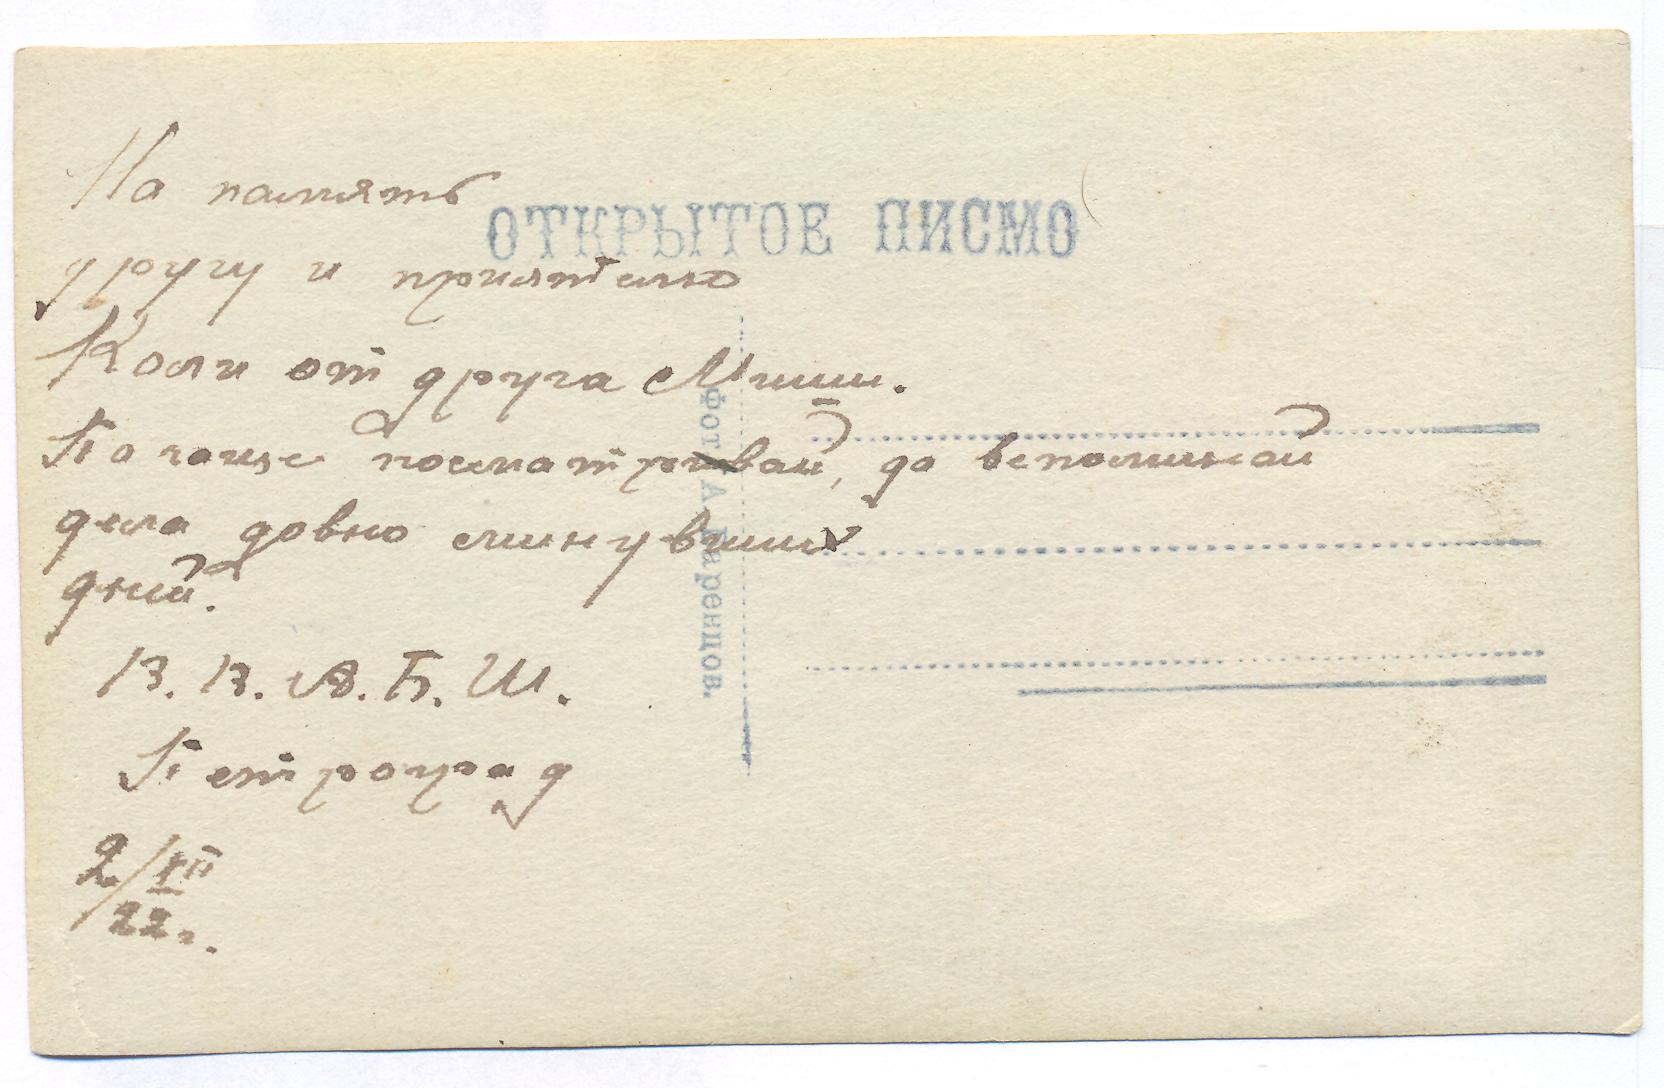 ОТКРЫТОЕ ПИСМО
На память
другу и приятелю
Коли от друга Миши.
По чаще посматривай, да вспоминай
дела довно минувших
дний.
В. В. А. Б. Ш.
Петроград
2/VII
22 г.
Фот. А. Баренцов.